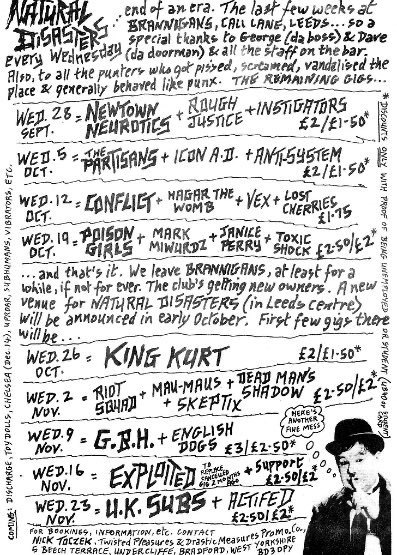 NATURAL DISASTERS
every Wednesday
...end of an era. The last few weeks at
BRANNIGANS, CALL LANE, LEEDS...so a
special thanks to George (da boss) & Dave
(da doorman) & all the staff on the bar.
Also, to all the punters who got pissed, screamed, vandalised the
place & generally behaved like punx. THE REMAINING GIGS...
WED. 28 SEPT. = NEWTOWN NEUROTICS + ROUGH JUSTICE + INSTIGATORS £2/£1·50*
WED. 5 OCT. = THE PARTISANS + ICON A.D. + ANTI-SYSTEM £2/£1·50*
WED. 12 OCT. = CONFLICT + HAGAR THE WOMB + VEX + LOST CHERRIES £1·75
WED. 19 OCT. = POISON GIRLS + MARK MIWURDZ + JANICE PERRY + TOXIC SHOCK £2·50/£2*
...and that's it. We leave BRANNIGANS, at least for a
while, if not for ever. The club's getting new owners. A new
venue for NATURAL DISASTERS (in Leeds Centre)
will be announced in early October. First few gigs there
will be...
WED. 26 OCT. = KING KURT £2/£1·50*
WED. 2 NOV. = RIOT SQUAD + MAU-MAUS + SKEPTIX + DEAD MAN'S SHADOW £2·50/£2*
WED. 9 NOV. = G.B.H. + ENGLISH DOGS £3/£2·50*
WED. 16 NOV. = EXPLOITED TO REPLACE CANCELLED GIG 2 MONTHS AGO + Support £2·50/£2*
WED. 23 NOV. = U.K. SUBS + ACTIFED £2·50/£2*
FOR BOOKINGS, INFORMATION, etc. CONTACT
NICK TOCZEK, Twisted Pleasures & Drastic Measures Promo. Co.,
5 BEECH TERRACE, UNDERCLIFFE, BRADFORD, WEST YORKSHIRE
BD3 0PY
COMING: DISCHARGE, TOY DOLLS, CHELSEA (Dec. 14), UPROAR, SUBHUMANS, VIBRATORS, ETC.
* DISCOUNTS ONLY WITH PROOF OF BEING UNEMPLOYED OR STUDENT
HERE'S ANOTHER FINE MESS